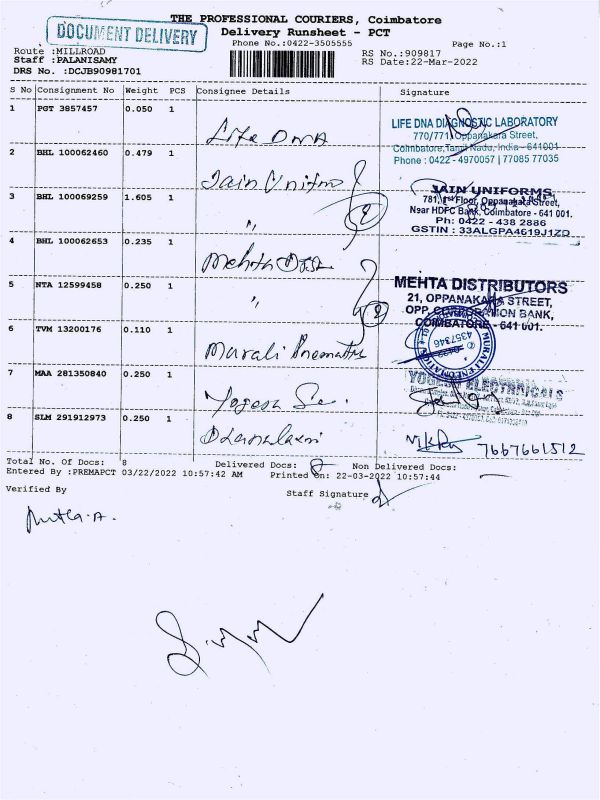 THE PROFESSIONAL COURIERS, Coimbatore
DOCUMENT DELIVERY
Delivery Runsheet - PCT
Phone No.:0422-3505555
Page No.:1
Route :MILLROAD
RS No.:909817
Staff :PALANISAMY
RS Date:22-Mar-2022
DRS No. :DCJB90981701
S No Consignment No Weight PCS Consignee Details Signature
1 PGT 3857457 0.050 1 Life DNA
LIFE DNA DIAGNOSTIC LABORATORY
770/771, Oppanakara Street,
Coimbatore, Tamil Nadu, India - 641001
Phone : 0422 - 4970057 | 77085 77035
2 BHL 100062460 0.479 1 Jain Uniform
JAIN UNIFORMS
781, 1st Floor, Oppanakara Street,
Near HDFC Bank, Coimbatore - 641 001.
Ph: 0422 - 438 2886
GSTIN : 33ALGPA4619J1ZD
3 BHL 100069259 1.605 1 "
2
4 BHL 100062653 0.235 1 Mehta
MEHTA DISTRIBUTORS
21, OPPANAKARA STREET,
OPP. CORPORATION BANK,
COIMBATORE - 641 001.
5 NTA 12599458 0.250 1 "
2
6 TVM 13200176 0.110 1 Murali
4357346
7 MAA 281350840 0.250 1 Yogesh
YOGESH ELECTRICALS
8 SLM 291912973 0.250 1 Dhanalaxmi
7667661512
Total No. Of Docs: 8 Delivered Docs: 8 Non Delivered Docs:
Entered By :PREMAPCT 03/22/2022 10:57:42 AM Printed On: 22-03-2022 10:57:44
Verified By
Staff Signature